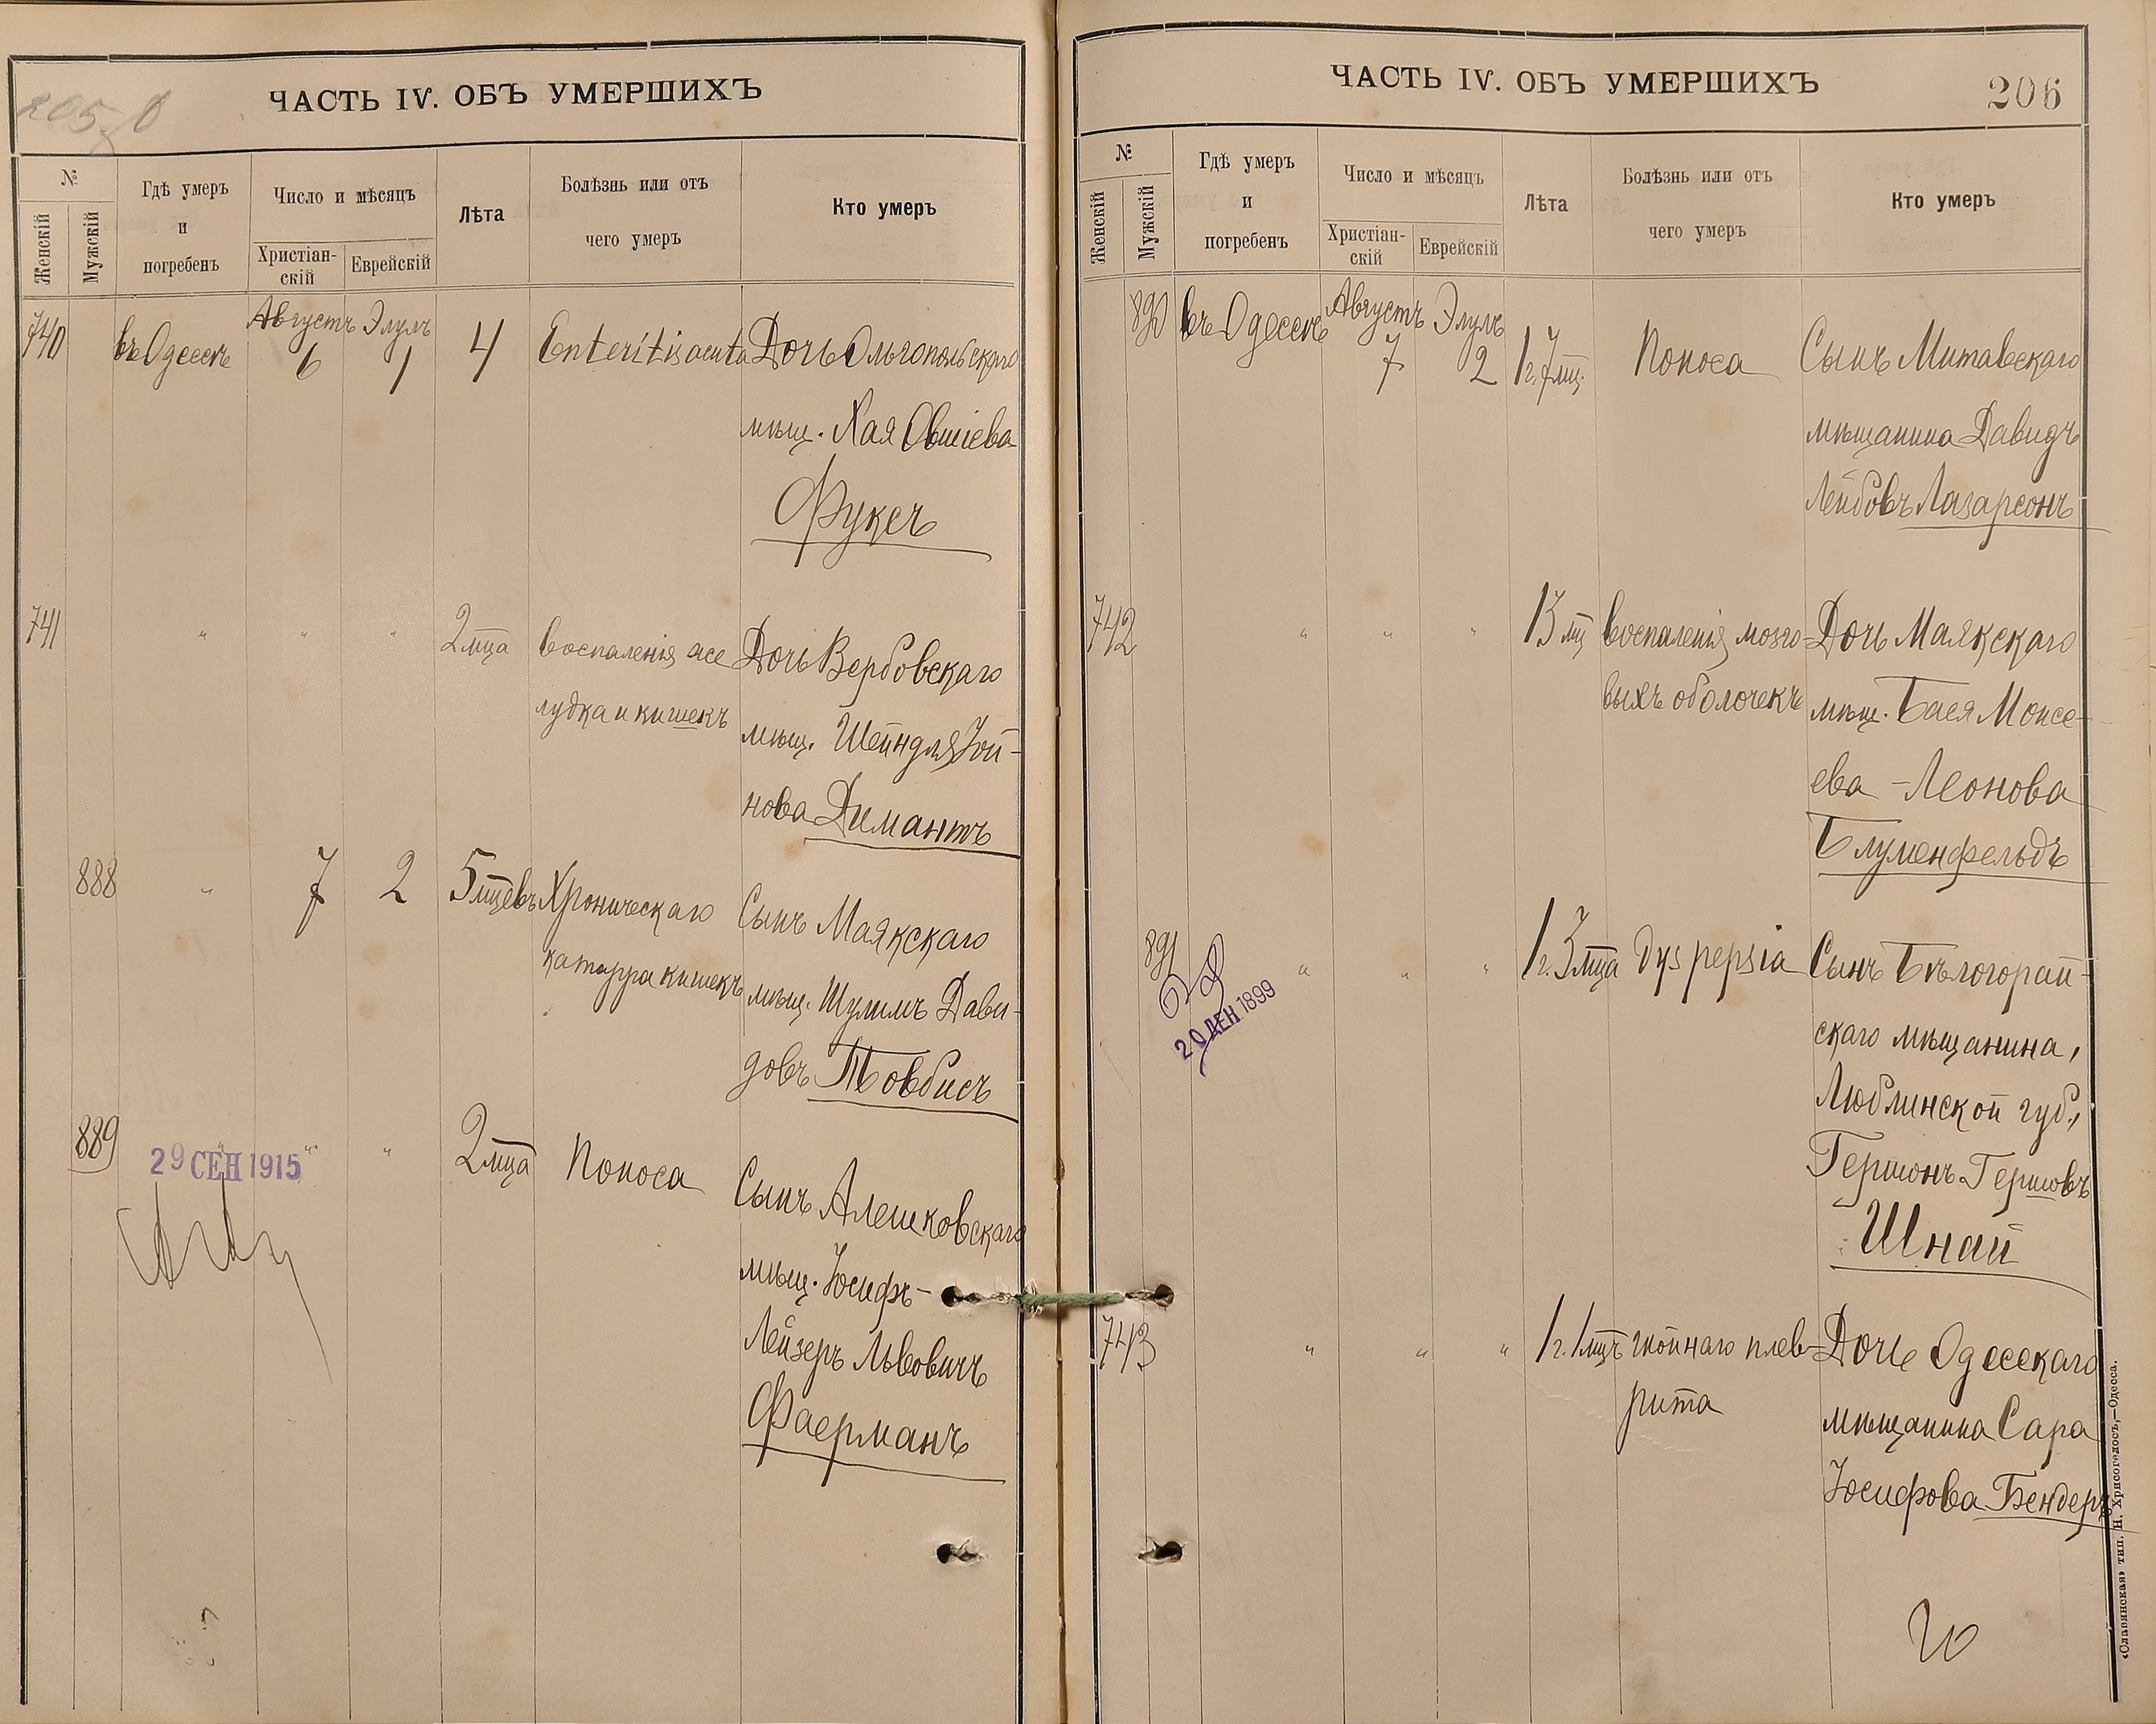 205 об
ЧАСТЬ IV. ОБЪ УМЕРШИХЪ
№
Женскій
Мужскій
Гдѣ умеръ
и
погребенъ
Число и мѣсяцъ
Христіан-
скій
Еврейскій
Лѣта
Болѣзнь или отъ
чего умеръ
Кто умеръ
740 въ Одессѣ Августъ 6 Элулъ 1 4 Enteritis acuta Дочь Ольгопольскаго
мѣщ. Хая Овшіева
Фуксъ
741 " " " 2 мца воспаленія же Дочь Вербовскаго
лудка и кишекъ мѣщ. Шейндля Іой-
нова Димантъ
888 " 7 2 5 мцевъ Хроническаго Сынъ Маякскаго
катарра кишекъ мѣщ. Шулимъ Дави-
довъ Товбисъ
889 " " " 2 мца Поноса Сынъ Алешковскаго
29 СЕН 1915
мѣщ. Іосифъ-
Лейзеръ Львовичъ
Фаерманъ
ЧАСТЬ IV. ОБЪ УМЕРШИХЪ
206
№
Женскій
Мужскій
Гдѣ умеръ
и
погребенъ
Число и мѣсяцъ
Христіан-
скій
Еврейскій
Лѣта
Болѣзнь или отъ
чего умеръ
Кто умеръ
890 въ Одессѣ Августъ 7 Элулъ 2 1 г. 7 мц. Поноса Сынъ Митавскаго
мѣщанина Давидъ
Лейбовъ Лазарсонъ
742 " " " 13 мц воспаленія мозго- Дочь Маякскаго
выхъ оболочекъ мѣщ. Бася Моисе-
ева - Леонова
Блуменфельдъ
891 " " " 1 г. 3 мца Dyspepsia Сынъ Бѣлгорай-
20 ДЕН 1899
скаго мѣщанина,
Люблинской губ.,
Гершонъ Гершовъ
Шнай
743 " " " 1 г. 1 мцъ гнойнаго плев- Дочь Одесскаго
рита мѣщанина Сара
Іосифова Бендеръ
«Славянская» тип. Н. Хрисогелосъ,—Одесса.